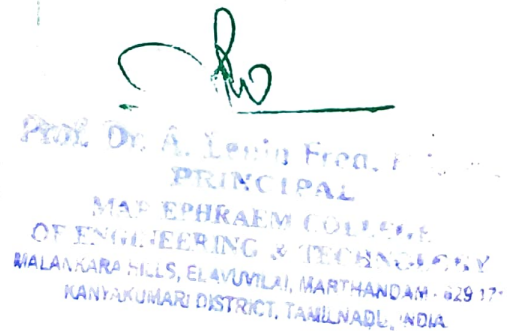 Prof. Dr. A. Lenin Fred,
PRINCIPAL
MAR EPHRAEM COLLEGE
OF ENGINEERING & TECHNOLOGY
MALANKARA HILLS, ELAVUVILAI, MARTHANDAM - 629 17
KANYAKUMARI DISTRICT, TAMILNADU, INDIA